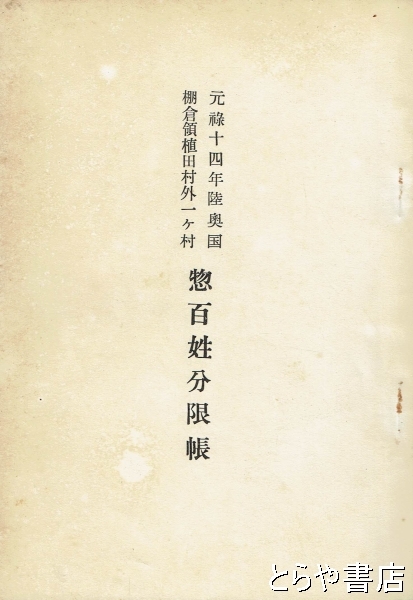 元祿十四年陸奥国
棚倉領植田村外一ケ村
惣百姓分限帳
とらや書店